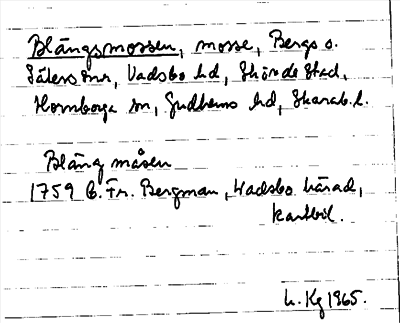 Blängsmossen, mosse, Bergs o.
Säters snr, Vadsbo hd, Skövde stad,
Hornborga sn, Gudhems hd, Skarab. l.
Bläng måsen
1759 C. Fr. Bergman, Wadsbo härad,
kartbil.
Kg 1965.